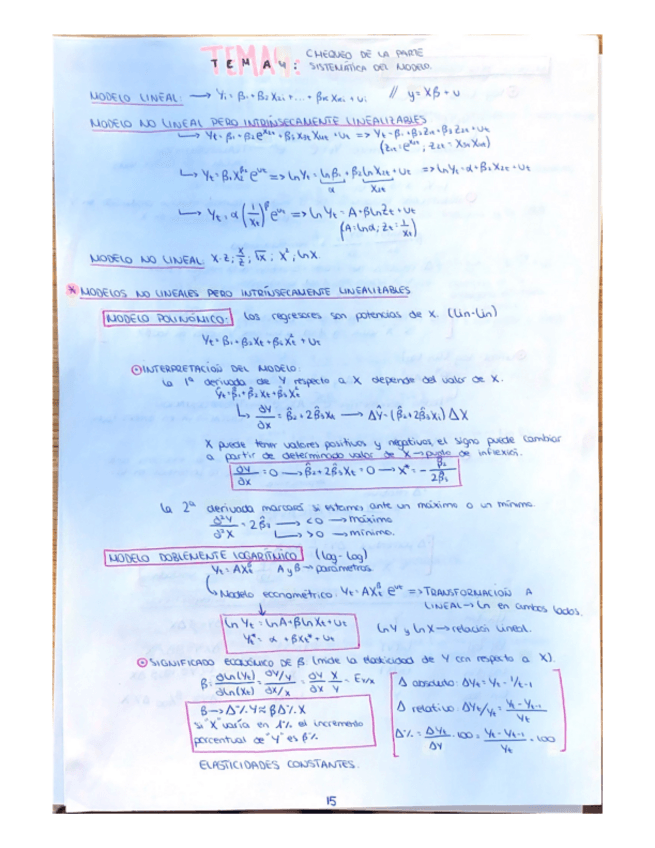 TEMA4: CHEQUEO DE LA PARTE
TEMA4: SISTEMÁTICA DEL MODELO.
MODELO LINEAL: → Yi = β1 + β2 X2i + ... + βk Xki + ui // y = Xβ + u
MODELO NO LINEAL PERO INTRÍNSECAMENTE LINEALIZABLES
↳ Yt = β1 + β2 e^X2t + β3 X3t X4t + ut => Yt = β1 + β2 Z1t + β3 Z2t + ut
(Z1t = e^X2t ; Z2t = X3t X4t)
↳ Yt = β1 X2t^β2 e^ut => ln Yt = ln β1 + β2 ln X2t + ut => ln Yt = α + β2 X2t + ut
α X2t
↳ Yt = α (1/Xt)^β e^ut => ln Yt = A + β ln Zt + ut
(A = ln α ; Zt = 1/Xt)
MODELO NO LINEAL: X·Z ; X/Z ; √X ; X² ; ln X.
* MODELOS NO LINEALES PERO INTRÍNSECAMENTE LINEALIZABLES
MODELO POLINÓMICO: Los regresores son potencias de X. (Lin-Lin)
Yt = β1 + β2 Xt + β3 Xt² + ut
INTERPRETACIÓN DEL MODELO:
La 1ª derivada de Y respecto a X depende del valor de X.
Ŷt = β̂1 + β̂2 Xt + β̂3 Xt²
↳ ∂Y/∂X = β̂2 + 2β̂3 Xt → ΔŶ = (β̂2 + 2β̂3 Xt) ΔX
X puede tener valores positivos y negativos, el signo puede cambiar
a partir de determinado valor de X → punto de inflexión.
∂Y/∂X = 0 → β̂2 + 2β̂3 Xt = 0 → X* = - β̂2/2β̂3
La 2ª derivada marcará si estamos ante un máximo o un mínimo.
∂²Y/∂²X = 2β̂3 → <0 → máximo
↳ >0 → mínimo.
MODELO DOBLEMENTE LOGARÍTMICO (log-log)
Yt = AXt^β A y β → parámetros.
↳ Modelo econométrico: Yt = AXt^β e^ut => TRANSFORMACIÓN A
LINEAL → ln en ambos lados.
ln Yt = ln A + β ln Xt + ut
Yt* = α + βXt* + ut
ln Y y ln X → relación lineal.
SIGNIFICADO ECONÓMICO DE β (mide la elasticidad de Y con respecto a X).
β = ∂ln(Yt)/∂ln(Xt) = ∂Y/Y / ∂X/X = ∂Y/∂X · X/Y = EY/X
β → Δ% Y ≈ β Δ% X
si "X" varía en 1% el incremento
porcentual de "Y" es β%
Δ absoluto: ΔYt = Yt - Yt-1
Δ relativo: ΔYt/Yt = Yt - Yt-1 / Yt
Δ% = ΔYt/ΔY · 100 = Yt - Yt-1 / Yt · 100
ELASTICIDADES CONSTANTES.
15